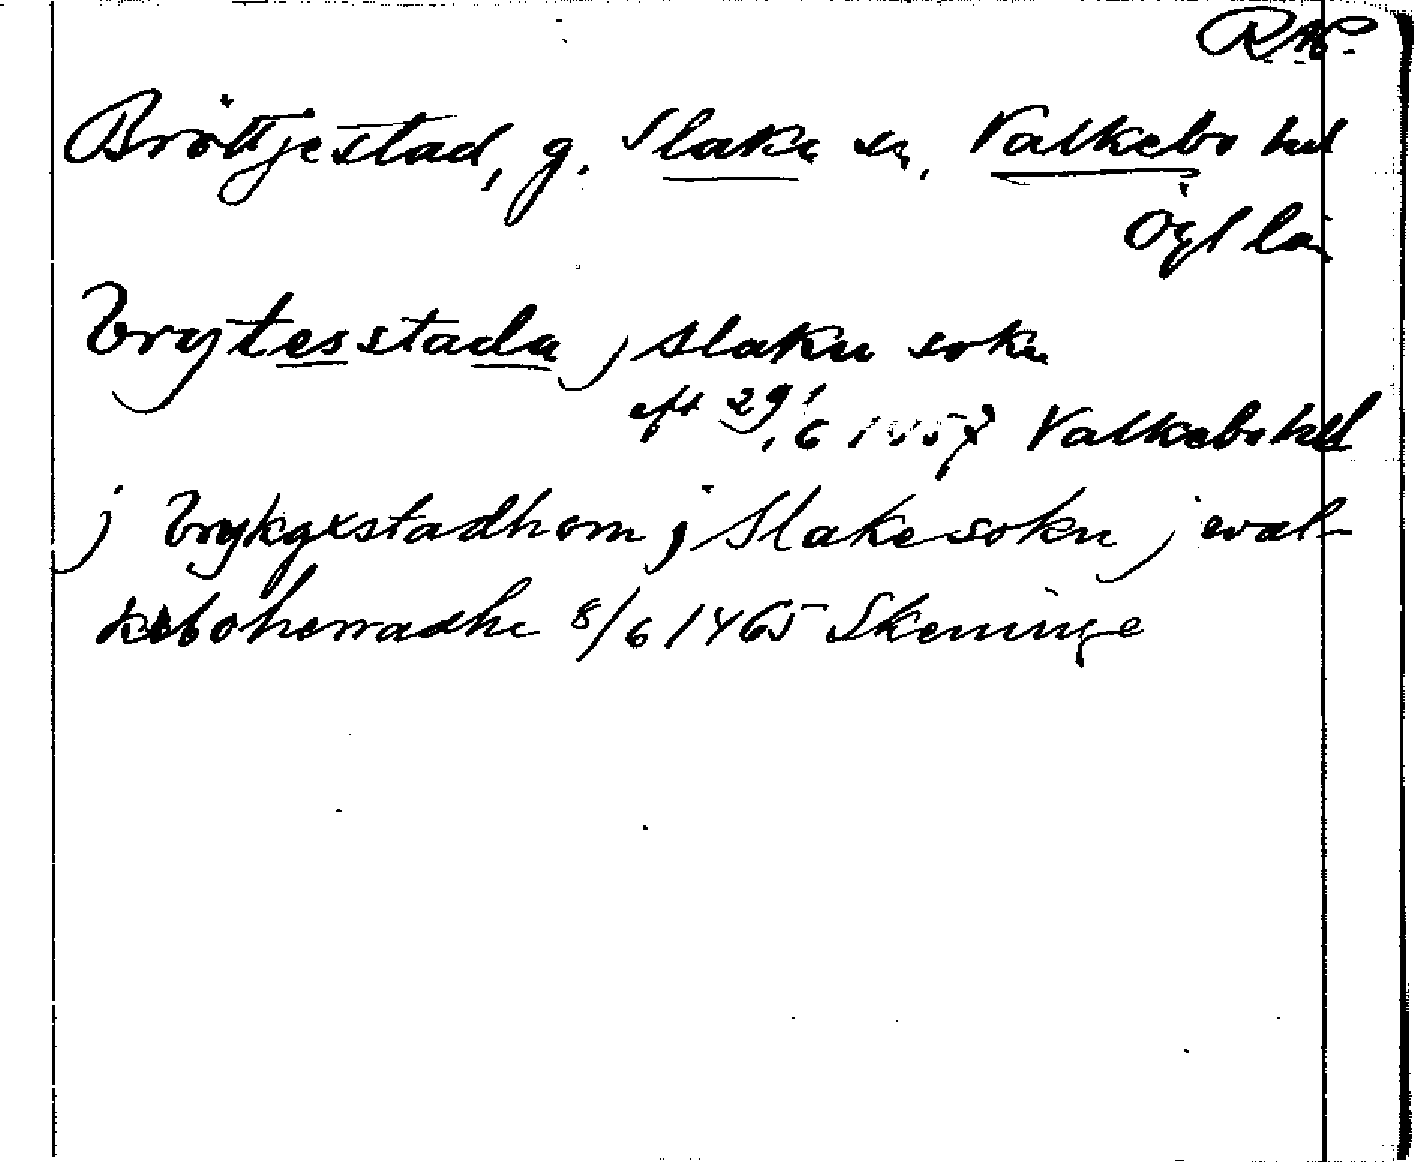 RAP.
Bröttjestad, g. Slaka sn, Valkebo hd
Ögl län
brytesstada j slaku sokn
eft 29/6 1457 Valkebo hd
j brykgxstadhom j Slakesokn j wal-
keboherradhe 8/6 1465 Skeninge